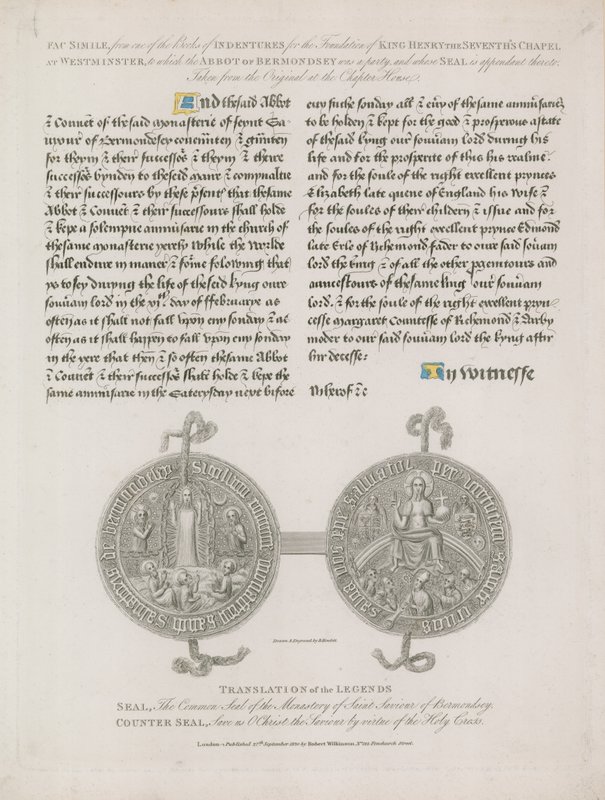 FAC SIMILE, from one of the Books of INDENTURES for the Foundation of KING HENRY THE SEVENTH'S CHAPEL
AT WESTMINSTER, to which the ABBOT OF BERMONDSEY was a party, and whose SEAL is appendant thereto.
Taken from the Original at the Chapter House.
And the said Abbot
& Couent of the said monasterie of seynt Sa-
uyour of Bermondesey couenñten & gñnten
for theym & their successoẜ & theym & theire
successoẜ bynden to the seid maire & comynaltie
& their successours by these p̃sent̃ that thesame
Abbot & Couent & their successours shall holde
& kepe a solempne anniu̾sarie in the church of
thesame monasterie yerely While the Worlde
shall endure in maner & fo'me folowing that
ys to sey during the life of the seid kyng oure
sou̾aiu lord in the vjth day of ffebruarye as
often as it shall not fall vpon eny sonday & as
often as it shall happen to fall vpon eny sonday
in the yere that then & so often thesame Abbot
& Couent & their successoẜ shall holde & kepe the
same anniu̾sarie in the Saterysday next bifore
eu̾y suche sonday all & eu̾y of thesame anniu̾sarieẜ
to be holden & kept for the good & prosperous astate
of the said kyng our sou̾aiu lord during his
life and for the prosperite of this his realme
and for the soule of the right excellent prynces
Elizabeth late quene of England his Wife &
for the soules of their childern & issue and for
the soules of the right excellent prynce Edmond
late Erle of Richemond fader to our said sou̾ain
lord the king & of all the other p̃genitours and
auncestours of thesame king our sou̾aiu
lord. & for the soule of the right excellent pryn-
cesse margaret Countesse of Richemond & Darby
moder to our said sou̾ain lord the kyng after
hir decesse:
In witnesse
Wherof &c
Sigillum comune monasterij sancti saluatoris de Bermondesey
per virtutem sancte crucis salua nos xpe saluator
Drawn & Engraved by B. Howlett
TRANSLATION of the LEGENDS
SEAL, The Common Seal of the Monastery of Saint Saviour of Bermondsey.
COUNTER SEAL, Save us O Christ the Saviour by virtue of the Holy Cross.
London Published 27th September 1820 by Robert Wilkinson, No. 125 Fenchurch Street.